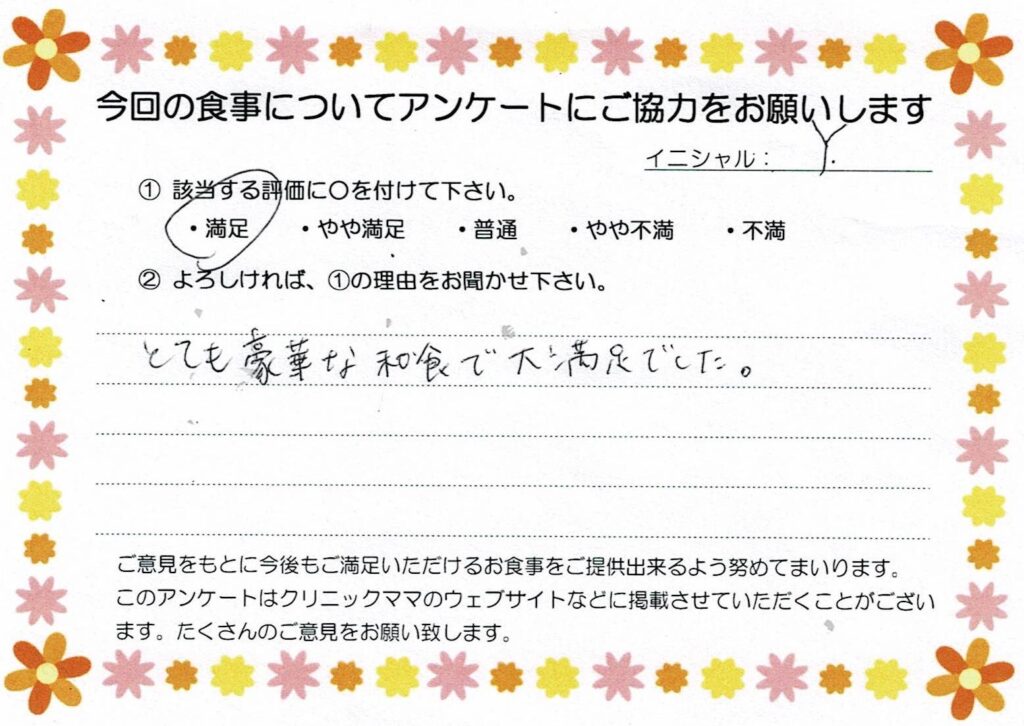 今回の食事についてアンケートにご協力をお願いします
イニシャル： Y.
① 該当する評価に〇を付けて下さい。
・満足 ・やや満足 ・普通 ・やや不満 ・不満
② よろしければ、①の理由をお聞かせ下さい。
とても豪華な和食で大満足でした。
ご意見をもとに今後もご満足いただけるお食事をご提供出来るよう努めてまいります。
このアンケートはクリニックママのウェブサイトなどに掲載させていただくことがござい
ます。たくさんのご意見をお願い致します。